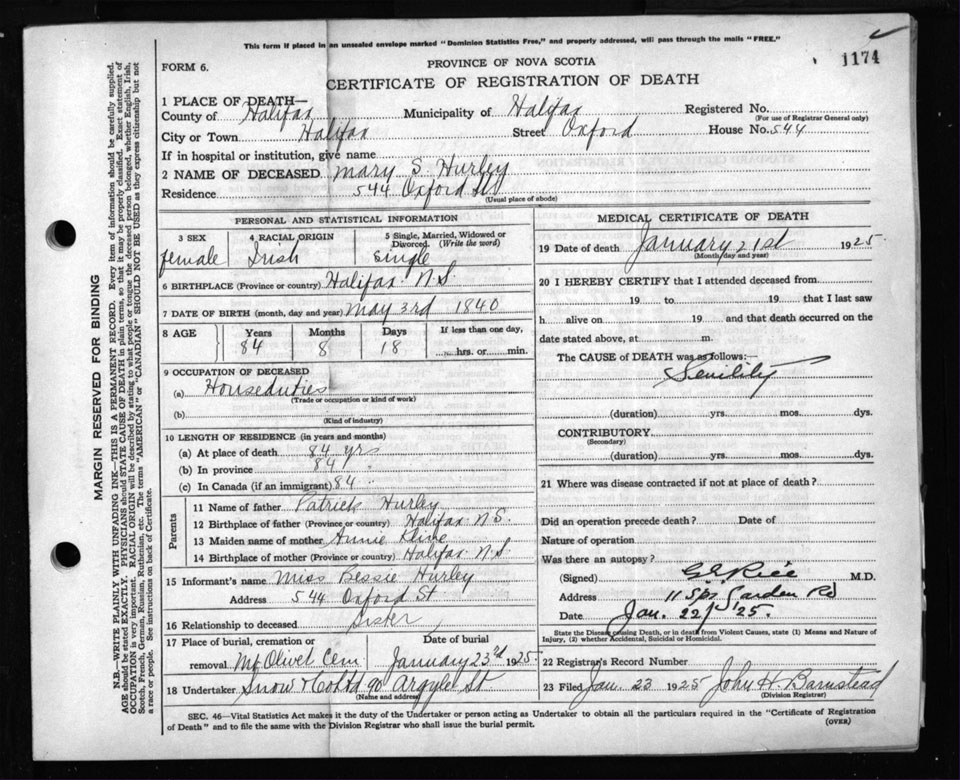 This form if placed in an unsealed envelope marked "Dominion Statistics Free," and properly addressed, will pass through the mails "FREE."
1174
FORM 6.
PROVINCE OF NOVA SCOTIA
CERTIFICATE OF REGISTRATION OF DEATH
1 PLACE OF DEATH—
County of Halifax Municipality of Halifax Registered No.
(For use of Registrar General only)
City or Town Halifax Street Oxford House No. 544
If in hospital or institution, give name
2 NAME OF DECEASED Mary S. Hurley
Residence 544 Oxford St
(Usual place of abode)
PERSONAL AND STATISTICAL INFORMATION
3 SEX 4 RACIAL ORIGIN 5 Single, Married, Widowed or Divorced. (Write the word)
female Irish Single
6 BIRTHPLACE (Province or country) Halifax N.S.
7 DATE OF BIRTH (month, day and year) May 3rd 1840
8 AGE Years Months Days If less than one day,
84 8 18 hrs. or min.
9 OCCUPATION OF DECEASED
(a) Houseduties
(Trade or occupation or kind of work)
(b)
(Kind of industry)
10 LENGTH OF RESIDENCE (in years and months)
(a) At place of death 84 yrs
(b) In province 84 "
(c) In Canada (if an immigrant) 84 "
Parents
11 Name of father Patrick Hurley
12 Birthplace of father (Province or country) Halifax N.S.
13 Maiden name of mother Annie Kline
14 Birthplace of mother (Province or country) Halifax N.S.
15 Informant's name Miss Bessie Hurley
Address 544 Oxford St
16 Relationship to deceased Sister
17 Place of burial, cremation or Date of burial
removal Mt Olivet Cem January 23rd 1925
18 Undertaker Snow & Co Ltd 90 Argyle St
(Name and address)
MEDICAL CERTIFICATE OF DEATH
19 Date of death January 21st 1925
(Month, day and year)
20 I HEREBY CERTIFY that I attended deceased from
19 to 19 that I last saw
h alive on 19 and that death occurred on
date stated above, at m.
The CAUSE of DEATH was as follows:
Senility
(duration) yrs. mos. dys.
CONTRIBUTORY
(Secondary)
(duration) yrs. mos. dys.
21 Where was disease contracted if not at place of death?
Did an operation precede death? Date of
Nature of operation
Was there an autopsy?
(Signed) Rice M.D.
Address Garden Rd
Date Jan. 22/25.
State the Disease causing Death, or in death from Violent Causes, state (1) Means and Nature of
Injury, (2) whether Accidental, Suicidal or Homicidal.
22 Registrar's Record Number
23 Filed Jan. 23 1925 John H. Barnstead
(Division Registrar)
SEC. 46—Vital Statistics Act makes it the duty of the Undertaker or person acting as Undertaker to obtain all the particulars required in the "Certificate of Registration
of Death" and to file the same with the Division Registrar who shall issue the burial permit. (OVER)
MARGIN RESERVED FOR BINDING
N.B.—WRITE PLAINLY WITH UNFADING INK—THIS IS A PERMANENT RECORD. Every item of information should be carefully supplied.
AGE should be stated EXACTLY. PHYSICIANS should STATE CAUSE OF DEATH in plain terms, so that it may be properly classified. Exact statement of
OCCUPATION is very important. RACIAL ORIGIN will be described by stating to what people or tongue the deceased person belonged, whether English, Irish,
Scotch, French, German, Russian, Ruthenian, etc. The terms "AMERICAN" or "CANADIAN" SHOULD NOT BE USED as they express citizenship but not
a race or people. See instructions on back of Certificate.